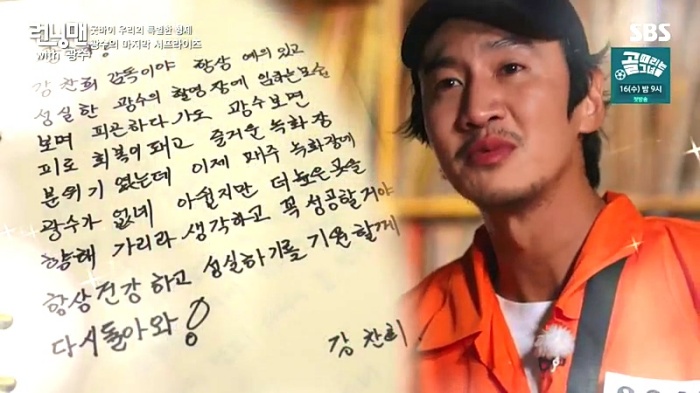 런닝맨
with 광수
굿바이 우리의 특별한 형제
광수의 마지막 서프라이즈
SBS
골때리는
그녀들
16(수) 밤 9시
첫방송
강찬희 감독이야 항상 예의 있고
성실한 광수의 촬영장에 임하는 모습
보며 피곤하다가도 광수보면
피로 회복이 돼고 즐거운 녹화장
분위기 였는데 이제 매주 녹화장에
광수가 없네 아쉽지만 더 높은 곳을
향해 가리라 생각하고 꼭 성공할거야
항상 건강하고 성실하기를 기원할께
다시 돌아와!
강찬희